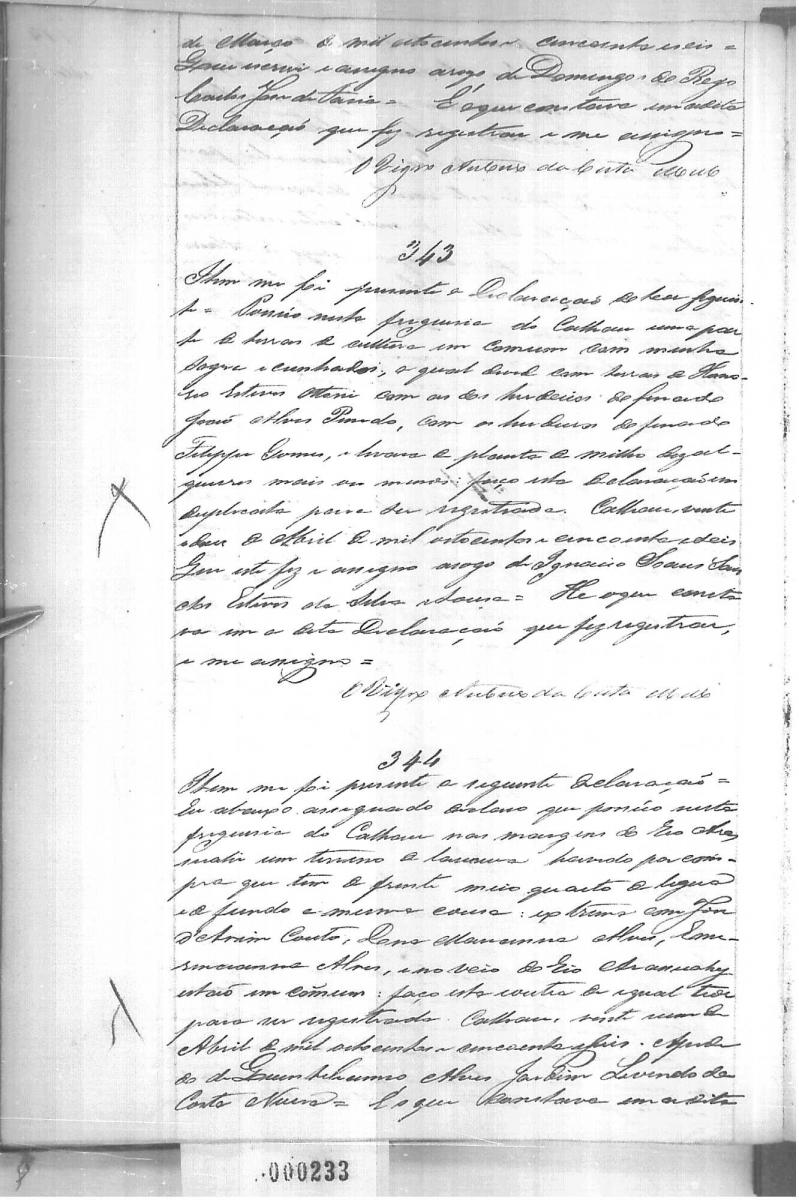 de Março de mil oito centos e cincoenta e seis =
Que escrevi e assigno arogo de Domingos do Rego
Carlos José de Faria = E o que constava em a dita
Declaração que fiz registrar e me assigno =
O Vigro Antonio da Costa
343
Item me foi presente a Declaração do teor seguin
te = Possúo nesta freguesia do Calhau uma par
te de terras de cultura em comum com minha
sogra e cunhados, a qual devide com terras de Hono
rio Esteves Ottoni com as dos herdeiros do finado
João Alves Prado, com os herdeiros do finado
Filippe Gomes, e levara de planta de milho dez al-
queires mais ou menos: faço esta declaração em
duplicata para ser registrada. Calhau, vinte
e dous de Abril de mil oito centos e cincoenta e seis
Que este fiz e assigno arogo de Ignacio
dos Esteves da Silva e Sousa = He o que consta
va em a dita Declaração que fiz registrar,
e me assigno =
O Vigro Antonio da Costa
344
Item me foi presente a seguinte declaração =
Eu abaixo assignado declaro que possúo nesta
freguesia do Calhau nas margens do Rio Ara
suahi um terreno de lavoura havido por com-
pra que tem de frente meio quarto de legua
e de fundo a mesma cousa: extrema com José
d'Amim Couto, Dona Marianna Alves, Eme-
renciana Alves, e no veio do Rio Arassuahy
estão em cõmum: faço esta e outra de igual teor
para ser registrada. Calhau, vinte e um de
Abril de mil oito centos e cincoenta e seis.
do de Quintiliano Alves Jardim
Costa = E o que constava em a dita
000233